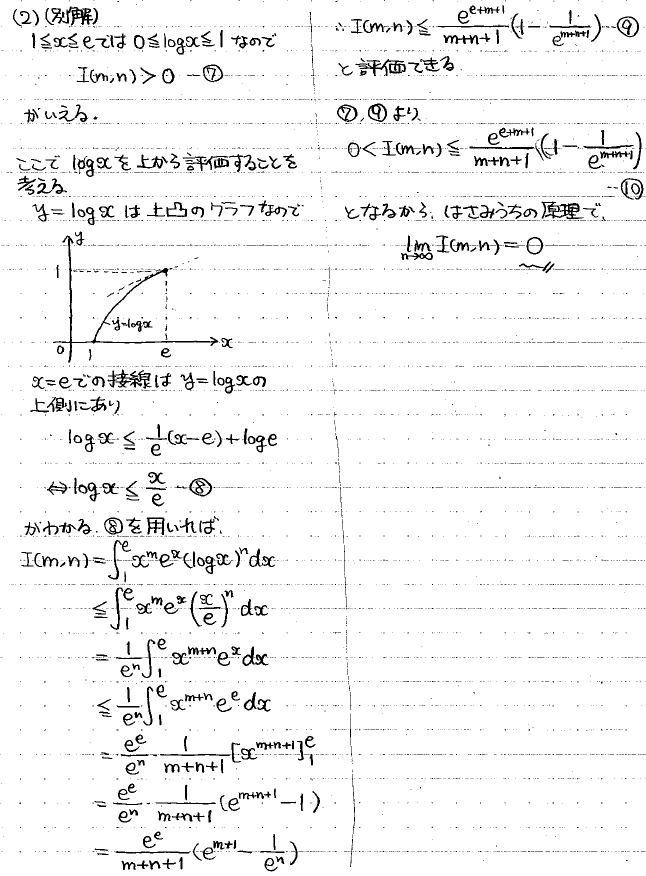 (2)(別解)
1≦x≦eでは 0≦logx≦1 なので
I(m,n)>0 —⑦
がいえる.
ここで logxを上から評価することを
考える
y=logx は上凸のグラフなので
y
1
y=logx
0 1 e x
x=eでの接線は y=logxの
上側にあり
logx ≦ \frac{1}{e}(x-e)+loge
⇔ logx ≦ \frac{x}{e} —⑧
がわかる. ⑧を用いれば,
I(m,n)=∫_1^e x^m e^x (logx)^n dx
≦ ∫_1^e x^m e^x (\frac{x}{e})^n dx
= \frac{1}{e^n} ∫_1^e x^{m+n} e^x dx
≦ \frac{1}{e^n} ∫_1^e x^{m+n} e^e dx
= \frac{e^e}{e^n}·\frac{1}{m+n+1}[x^{m+n+1}]_1^e
= \frac{e^e}{e^n}·\frac{1}{m+n+1}(e^{m+n+1}-1)
= \frac{e^e}{m+n+1}(e^{m+1}-\frac{1}{e^n})
∴ I(m,n) ≦ \frac{e^{e+m+1}}{m+n+1}(1-\frac{1}{e^{m+n+1}}) —⑨
と評価できる
⑦,⑨より
0< I(m,n) ≦ \frac{e^{e+m+1}}{m+n+1}(1-\frac{1}{e^{m+n+1}})
…⑩
となるから, はさみうちの原理で,
\lim_{n→∞} I(m,n) = 0